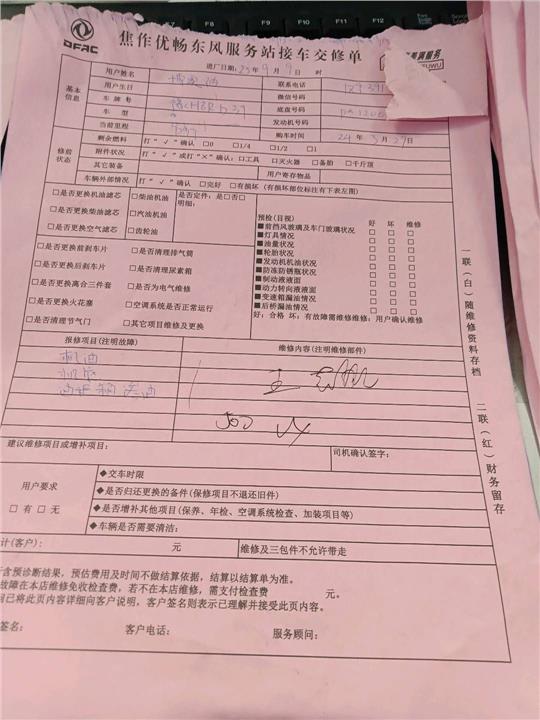 DFAC
焦作优畅东风服务站接车交修单
进厂日期: 25年9月9日 时
基本信息
用户姓名
联系电话
用户生日
微信号码
车牌号
底盘号码
车型
发动机号码
当前里程
购车时间 24年3月27日
修前状态
剩余燃料 打“√”确认 □0 □1/4 □1/2 □1
附件状况 打“√”或打“×”确认: □工具 □灭火器 □备胎 □千斤顶
其它装备
用户寄存物品
车辆外部情况 打“√”确认 □完好 □有损坏(有损坏部位标注有下表左图)
□是否更换机油滤芯 □柴油机油 是否定件: 是□否□
明细:
□是否更换柴油滤芯 □汽油机油
□是否更换空气滤芯 □齿轮油
预检(目视) 好 坏 维修
■前挡风玻璃及车门玻璃状况 □ □ □
■灯具情况 □ □ □
■油量状况 □ □ □
■轮胎状况 □ □ □
■发动机机油状况 □ □ □
■防冻防锈瓶状况 □ □ □
■制动液液面 □ □ □
■动力转向液液面 □ □ □
■变速箱漏油情况 □ □ □
■后桥漏油情况 □ □ □
好: 合格 坏: 有故障需维修维修: 用户确认维修
□是否更换前刹车片 □是否清理排气筒
□是否更换后刹车片 □是否清理尿素箱
□是否更换离合三件套 □是否为电气维修
□是否更换火花塞 □空调系统是否正常运行
□是否清理节气门 □其它项目维修及更换
报修项目(注明故障)
维修内容(注明维修部件)
机油
建议维修项目或增补项目:
司机确认签字:
用户要求
□有 □无
◆交车时限
◆是否归还更换的备件(保修项目不退还旧件)
◆是否增补其他项目(保养、年检、空调系统检查、加装项目等)
◆车辆是否需要清洁:
计(客户): 元
维修及三包件不允许带走
含预诊断结果,预估费用及时间不做结算依据,结算以结算单为准。
故障在本店维修免收检查费,若不在本店维修,需支付检查费 元。
已将此页内容详细向客户说明,客户签名则表示已理解并接受此页内容。
签名: 客户电话: 服务顾问:
一联(白)随维修资料存档
二联(红)财务留存